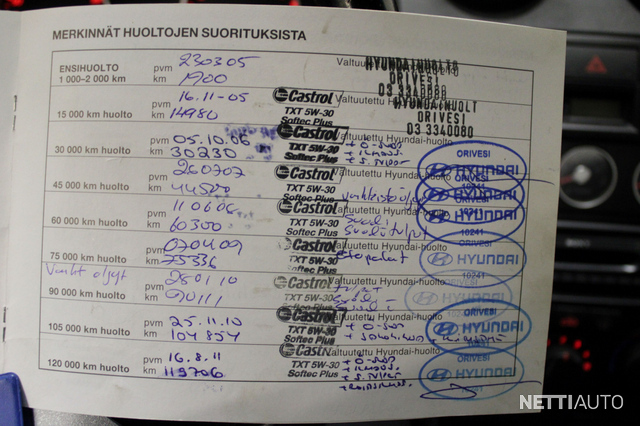 MERKINNÄT HUOLTOJEN SUORITUKSISTA
ENSIHUOLTO pvm 230305 Valtuutettu
1 000–2 000 km km 1900
HYUNDAIHUOLTO
ORIVESI
03 3340080
15 000 km huolto pvm 16.11-05 Castrol Valtuutettu Hyundai-huolto
km 14980 TXT 5W-30
Softec Plus
HYUNDAIHUOLT
ORIVESI
03 3340080
30 000 km huolto pvm 05.10.06 Castrol Valtuutettu Hyundai-huolto
km 30230 TXT 5W-30
Softec Plus
ORIVESI
HYUNDAI
10241
45 000 km huolto pvm 260707 Castrol Valtuutettu Hyundai-huolto
km 44500 TXT 5W-30
Softec Plus
ORIVESI
HYUNDAI
10241
60 000 km huolto pvm 110608 Castrol Valtuutettu Hyundai-huolto
km 60300 TXT 5W-30
Softec Plus
HYUNDAI
10241
75 000 km huolto pvm 070409 Castrol Valtuutettu Hyundai-huolto
km 75336 TXT 5W-30
Softec Plus
ORIVESI
HYUNDAI
10241
90 000 km huolto pvm 280110 Castrol Valtuutettu Hyundai-huolto
km 90111 TXT 5W-30
Softec Plus
105 000 km huolto pvm 25.11.10 Castrol Valtuutettu Hyundai-huolto
km 104854 TXT 5W-30
Softec Plus
ORIVESI
HYUNDAI
120 000 km huolto pvm 16.8.11 Castrol Valtuutettu Hyundai-huolto
km 119706 TXT 5W-30
Softec Plus
ORIVESI
HYUNDAI
10241
NETTIAUTO